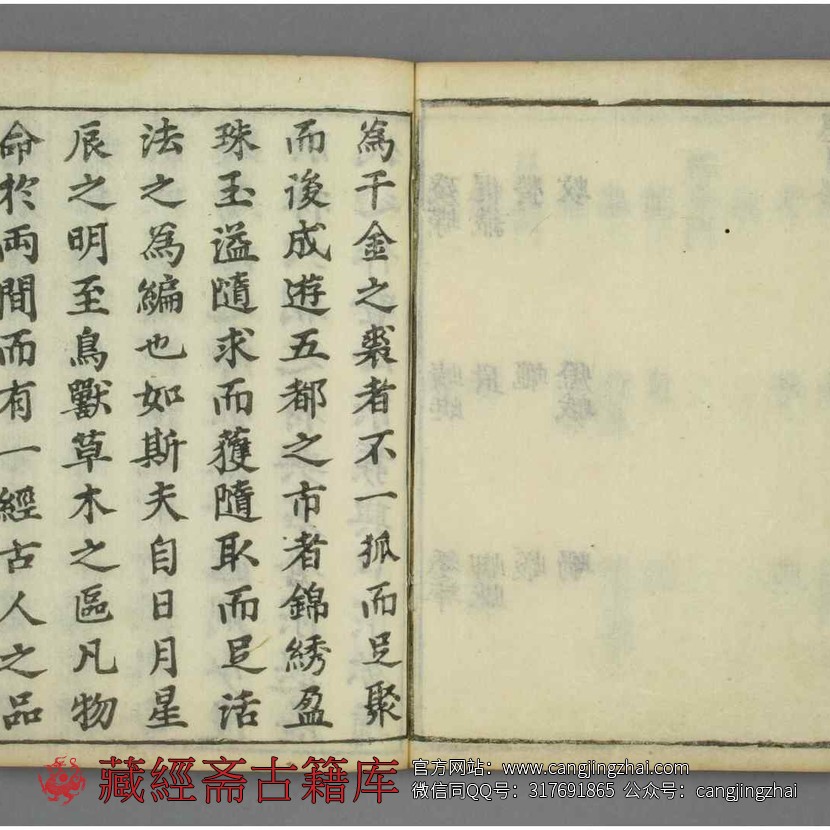 為千金之裘者不一狐而足聚
而後成遊五都之市者錦綉盈
珠玉溢隨求而獲隨取而足活
法之為編也如斯夫自日月星
辰之明至鳥獸草木之區凡物
命於兩間而有一經古人之品
藏經斋古籍库
官方网站：www.cangjingzhai.com
微信同QQ号：317691865 公众号：cangjingzhai